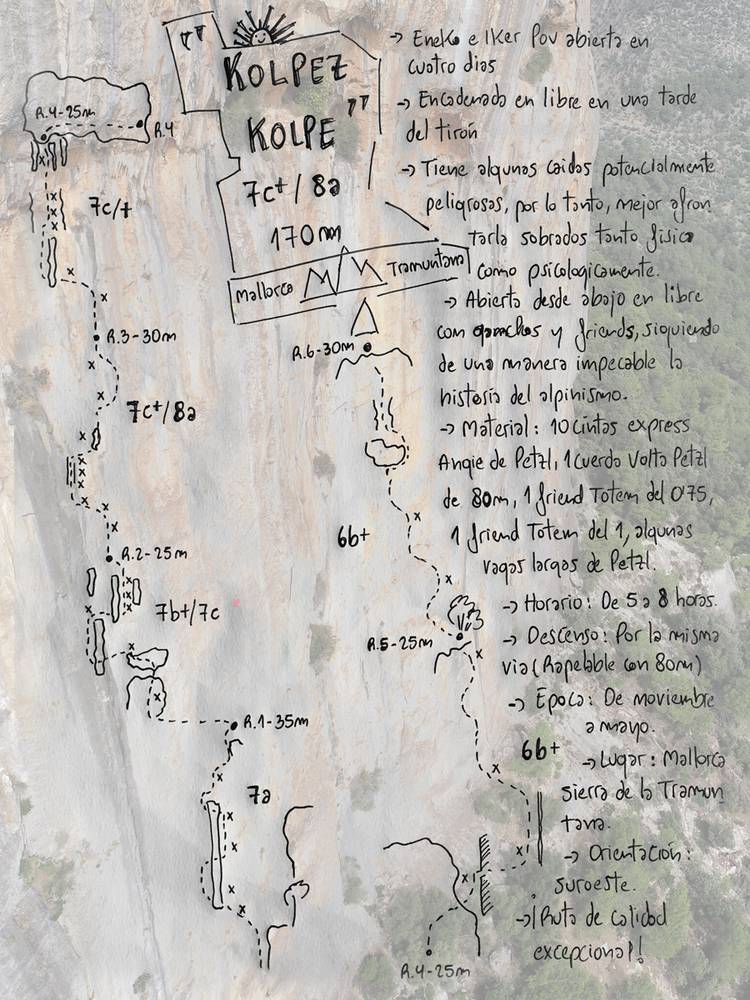 " KOLPEZ
KOLPE "
7c+/8a
170m
Mallorca Tramuntana
R.4-25m
R.4
7c/+
R.3-30m
7c+/8a
R.2-25m
7b+/7c
R.1-35m
7a
R.6-30m
6b+
R.5-25m
6b+
R.4-25m
→ Eneko e Iker Pou abierta en
cuatro dias
→ Encadenada en libre en una tarde
del tirón
→ Tiene algunas caidas potencialmente
peligrosas, por lo tanto, mejor afron
tarla sobrados tanto fisica
como psicologicamente.
→ Abierta desde abajo en libre
con ganchos y friends, siguiendo
de una manera impecable la
historia del alpinismo.
→ Material: 10 cintas express
Angie de Petzl, 1 cuerda Volta Petzl
de 80m, 1 friend Totem del 0'75,
1 friend Totem del 1, algunas
vagas largas de Petzl.
→ Horario: De 5 a 8 horas.
→ Descenso: Por la misma
via (Rapelable con 80m)
→ Epoca: De noviembre
a mayo.
→ Lugar: Mallorca
sierra de la Tramun
tana.
→ Orientación:
suroeste.
→ ¡Ruta de calidad
excepcional!